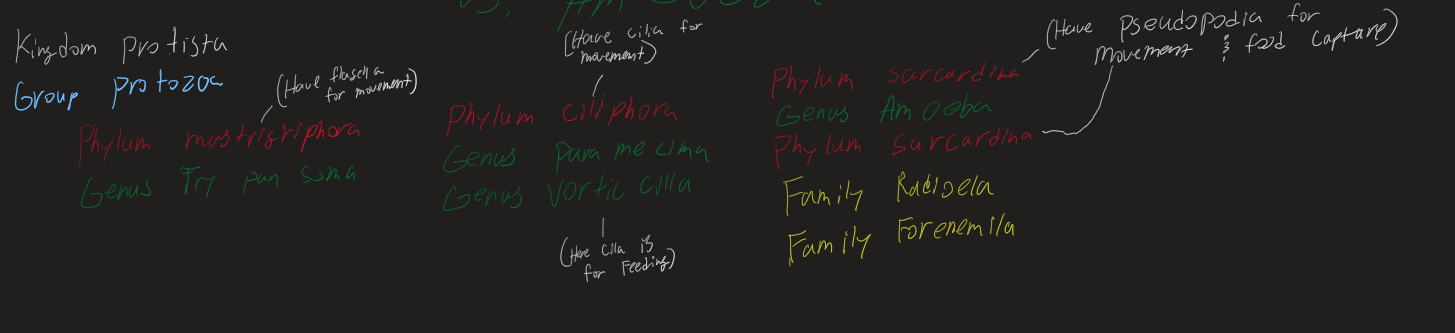 Kingdom protista
Group protozoa
(Have flagella
for movement)
Phylum mastrigriphora
Genus Try pan soma
(Have cilia for
movement)
Phylum ciliphora
Genus para me cima
Genus Vortic cilla
(Have cila is
for Feeding)
(Have pseudopodia for
movement & food capture)
Phylum surcardina
Genus Amoeba
Phylum Surcardina
Family Radioela
Family Forenemila